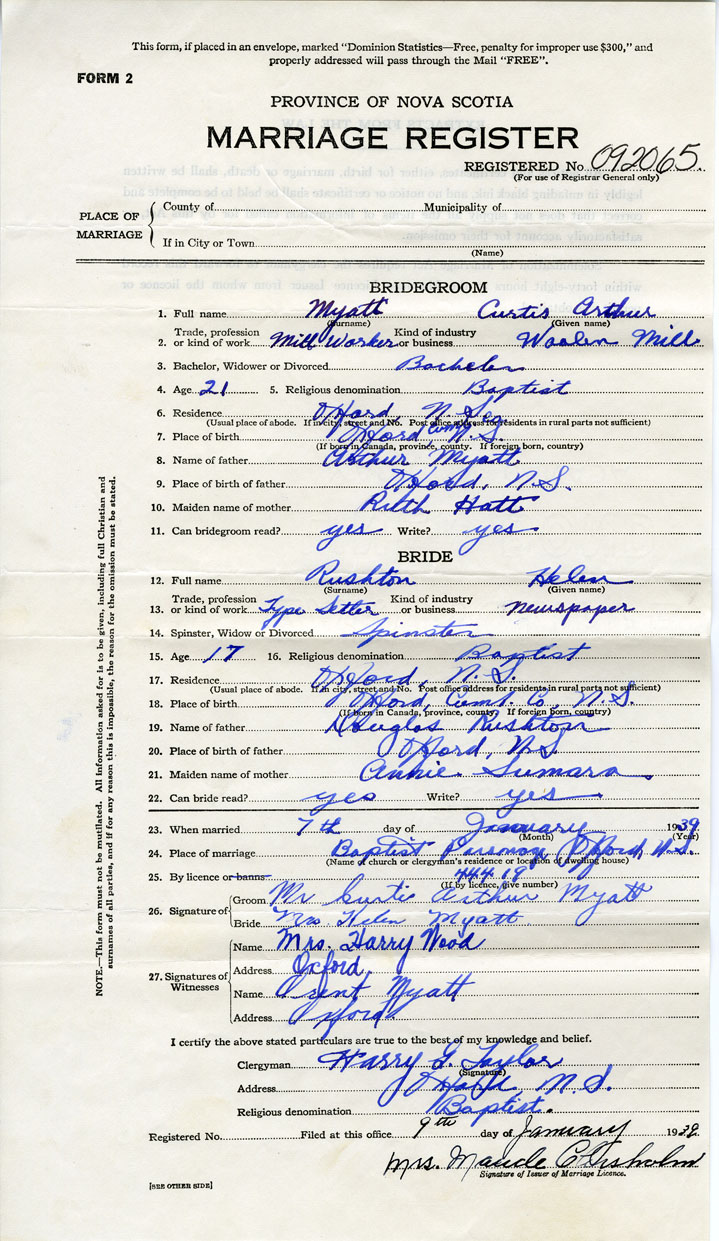 This form, if placed in an envelope, marked "Dominion Statistics—Free, penalty for improper use $300," and
properly addressed will pass through the Mail "FREE".
FORM 2
PROVINCE OF NOVA SCOTIA
MARRIAGE REGISTER
REGISTERED No 092065.
(For use of Registrar General only)
PLACE OF MARRIAGE
County of Municipality of
If in City or Town
(Name)
BRIDEGROOM
1. Full name Myatt Curtis Arthur
(Surname) (Given name)
2. Trade, profession or kind of work Mill Worker Kind of industry or business Woolen Mill
3. Bachelor, Widower or Divorced Bachelor
4. Age 21 5. Religious denomination Baptist
6. Residence Oxford, N.S.
(Usual place of abode. If in city, street and No. Post office address for residents in rural parts not sufficient)
7. Place of birth Oxford N.S.
(If born in Canada, province, county. If foreign born, country)
8. Name of father Arthur Myatt
9. Place of birth of father Oxford, N.S.
10. Maiden name of mother Ruth Hatt
11. Can bridegroom read? yes Write? yes
BRIDE
12. Full name Rushton Helen
(Surname) (Given name)
13. Trade, profession or kind of work Type Setter Kind of industry or business newspaper
14. Spinster, Widow or Divorced Spinster
15. Age 17 16. Religious denomination Baptist
17. Residence Oxford, N.S.
(Usual place of abode. If in city, street and No. Post office address for residents in rural parts not sufficient)
18. Place of birth Oxford, Cum. Co., N.S.
(If born in Canada, province, country. If foreign born, country)
19. Name of father Douglas Rushton
20. Place of birth of father Oxford, N.S.
21. Maiden name of mother Annie
22. Can bride read? yes Write? yes
23. When married 7th day of January 1939
(Month) (Year)
24. Place of marriage Baptist Parsonage Oxford, N.S.
(Name of church or clergyman's residence or location of dwelling house)
25. By licence or banns 44419
(If by licence, give number)
26. Signature of
Groom Mr Curtis Arthur Myatt
Bride Mrs. Helen Myatt
27. Signatures of Witnesses
Name Mrs. Harry Wood
Address Oxford,
Name Myatt
Address Oxford
I certify the above stated particulars are true to the best of my knowledge and belief.
Clergyman Harry G. Taylor
(Signature)
Address Oxford, N.S.
Religious denomination Baptist.
Registered No. Filed at this office 9th day of January 1939
Mrs. Maude Chisholm
Signature of Issuer of Marriage Licence.
[SEE OTHER SIDE]
NOTE.—This form must not be mutilated. All Information asked for is to be given, including full Christian and
surnames of all parties, and if for any reason this is impossible, the reason for the omission must be stated.